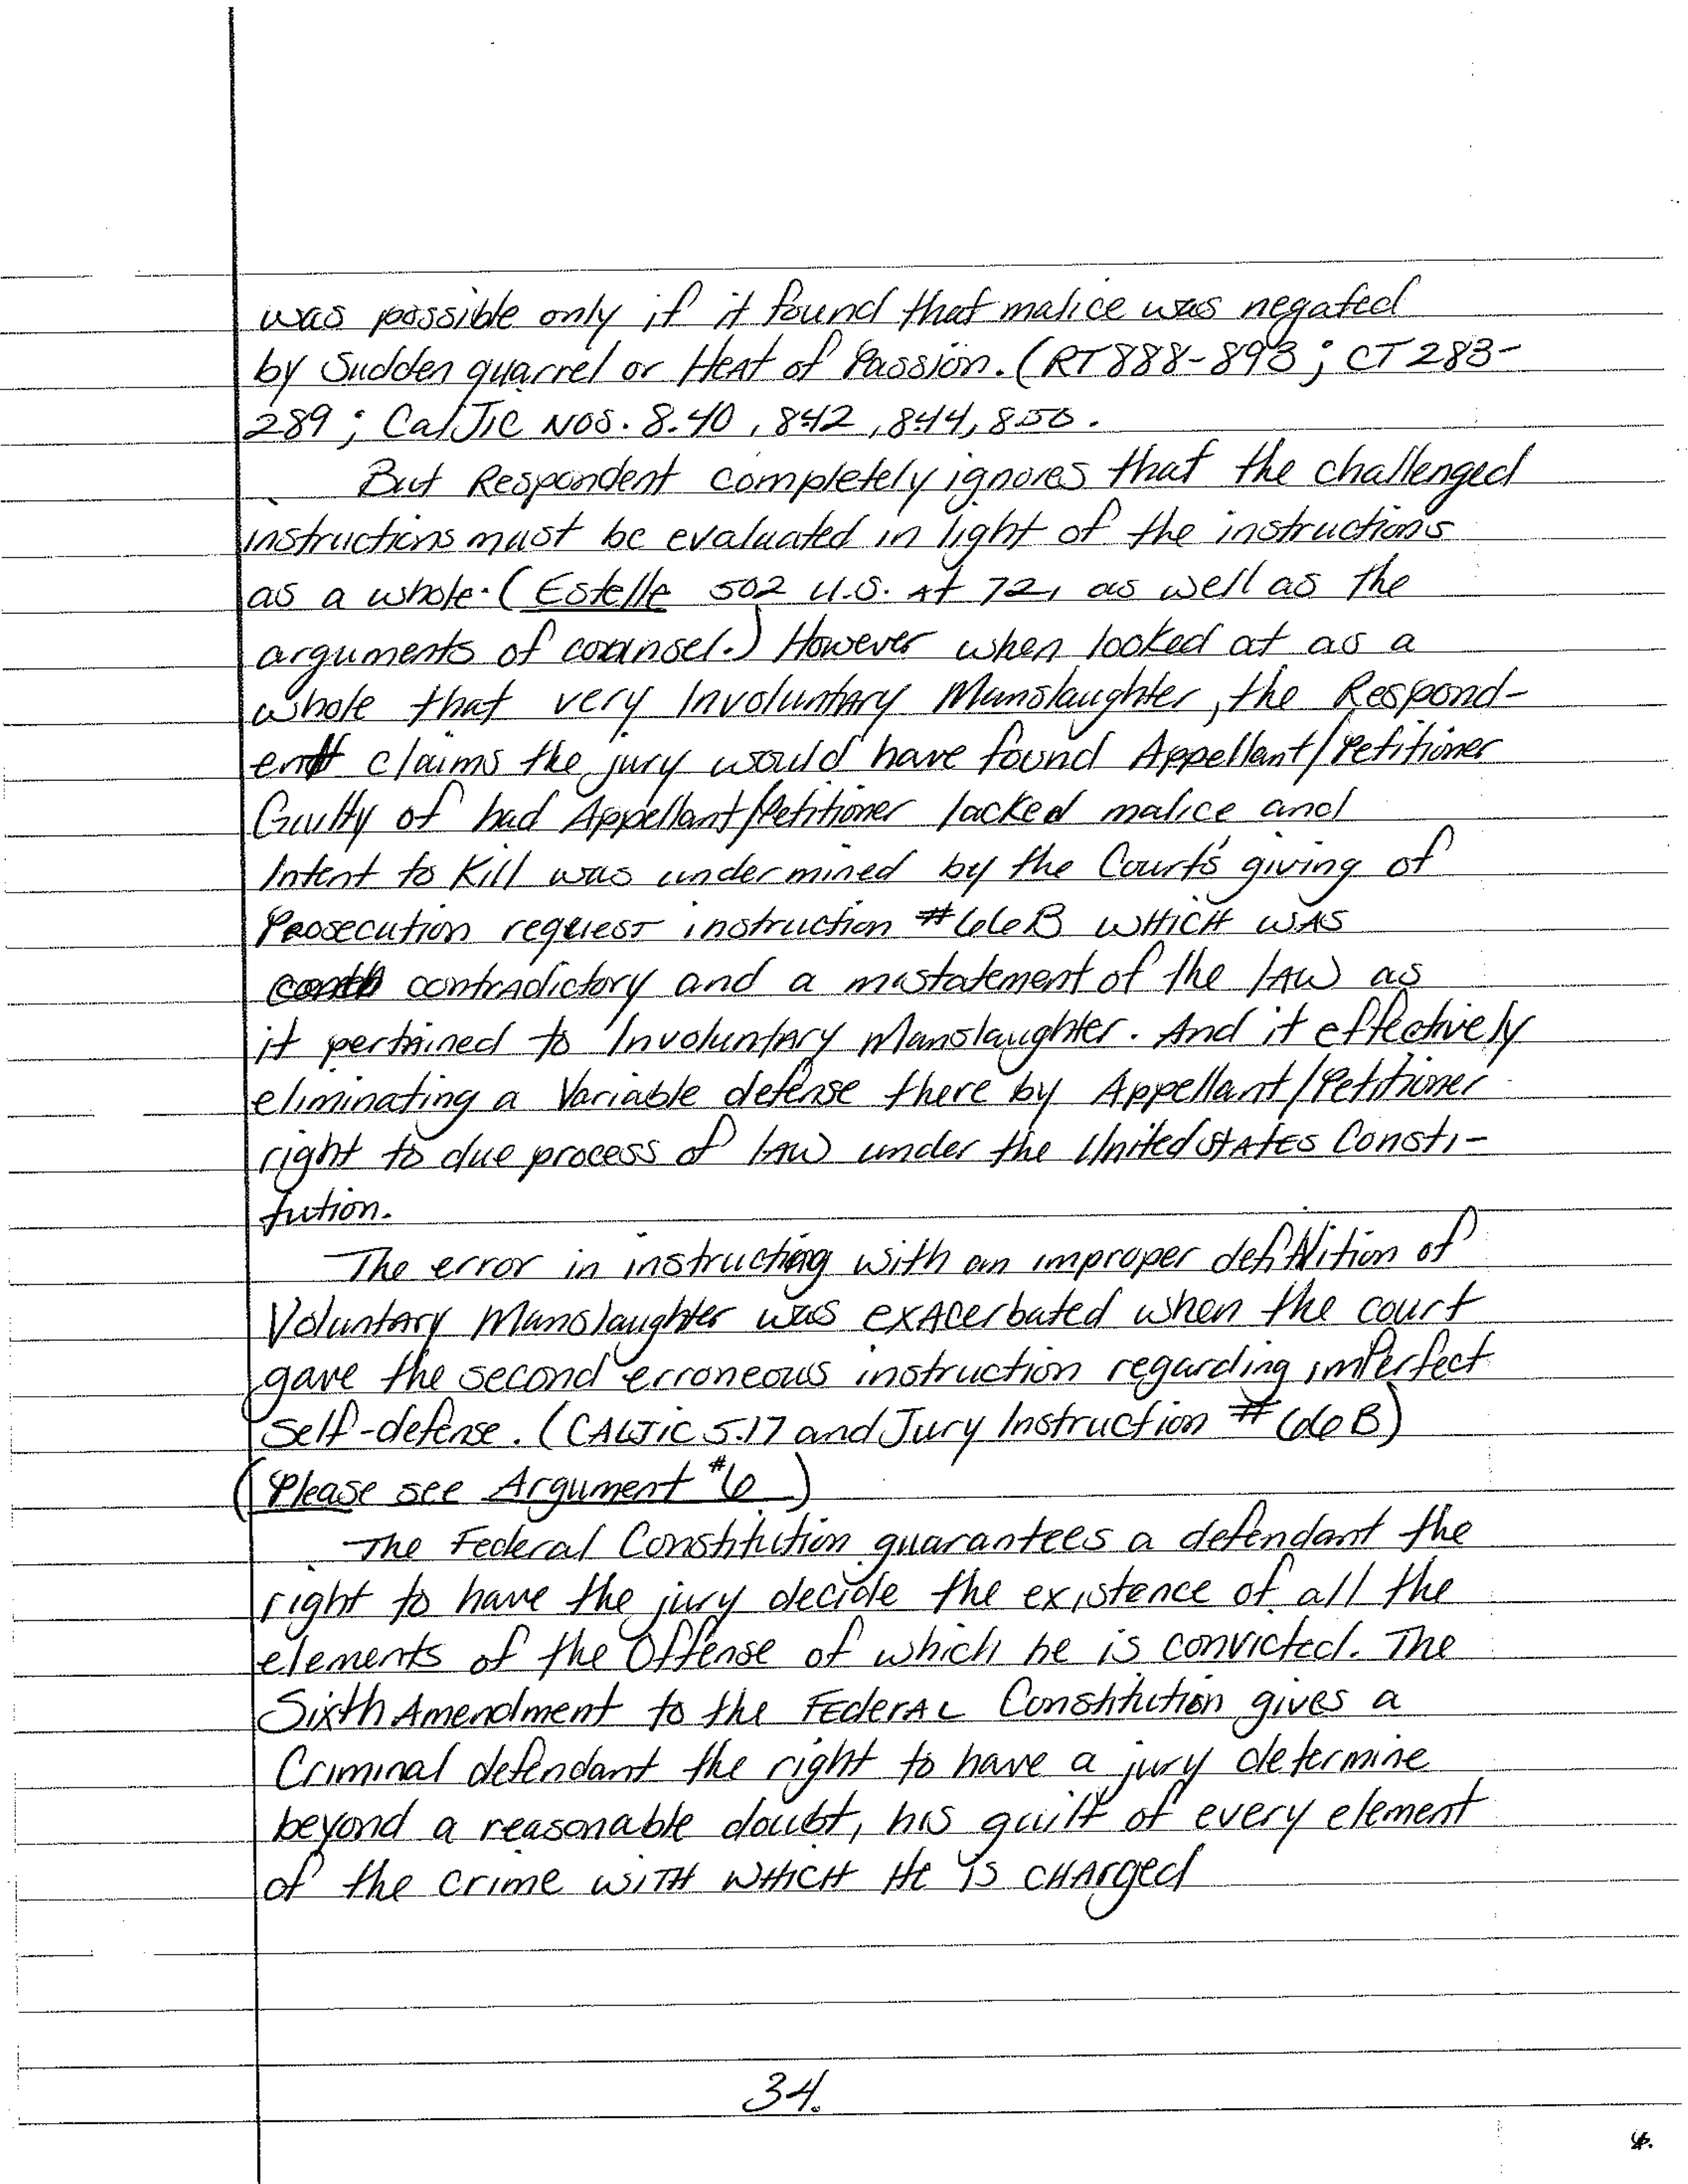 was possible only if it found that malice was negated
by Sudden quarrel or Heat of Passion. (RT 888-893; CT 283-
289; CalJic NOS. 8.40, 8.42, 8.44, 8.50.
But Respondent completely ignores that the challenged
instructions must be evaluated in light of the instructions
as a whole. (Estelle 502 U.S. At 72, as well as the
arguments of counsel.) However when looked at as a
whole that very Involuntary Manslaughter, the Respond-
ent claims the jury would have found Appellant/Petitioner
Guilty of had Appellant/Petitioner lacked malice and
Intent to Kill was undermined by the Court's giving of
Prosecution request instruction #66B WHICH WAS
contradictory and a mistatement of the LAW as
it pertained to Involuntary Manslaughter. And it effectively
eliminating a Variable defense there by Appellant/Petitioner
right to due process of LAW under the United STATES Consti-
tution.
The error in instructing with an improper defiNition of
Voluntary Manslaughter was exAcerbated when the court
gave the second erroneous instruction regarding imPerfect
Self-defense. (CALJIC 5.17 and Jury Instruction #66B)
(Please see Argument #6)
The Federal Constitution guarantees a defendant the
right to have the jury decide the existence of all the
elements of the Offense of which he is convicted. The
Sixth Amendment to the FEderAL Constitution gives a
Criminal defendant the right to have a jury determine
beyond a reasonable doubt, his guilt of every element
of the crime WITH WHICH He is CHArged
34.